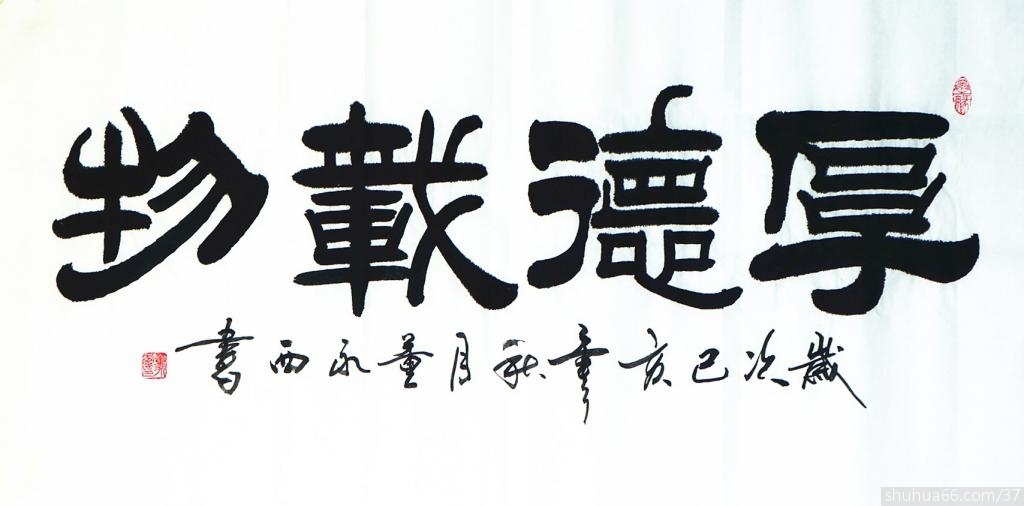 厚德載物
歲次己亥年秋月董永西書
shuhua66.com/37